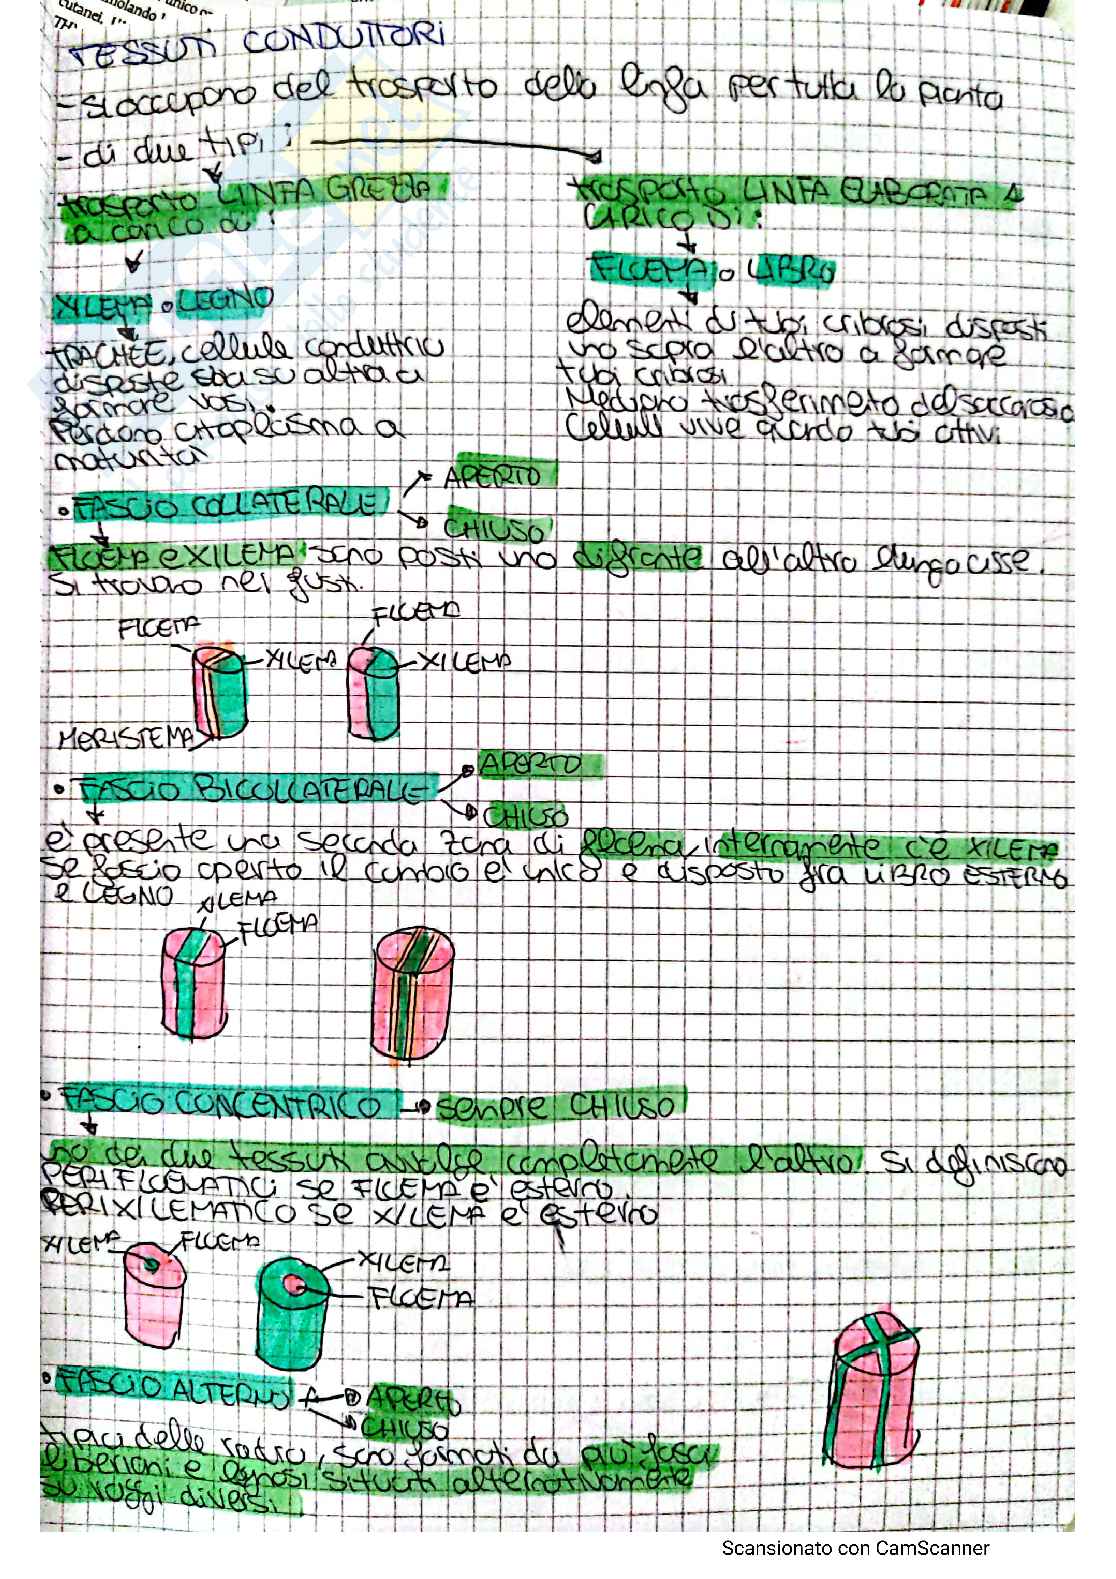 cutanei,
TESSUTI CONDUTTORI
- si occupano del trasporto della linfa per tutta la pianta
- di due tipi:
trasporto LINFA GREZZA
a carico di:
XILEMA o LEGNO
TRACHEE, cellule conduttrici
disposte una su altra a
formare vasi.
Perdono citoplasma a
maturità
trasporto LINFA ELABORATA A
CARICO DI:
FLOEMA o LIBRO
elementi di tubi cribrosi disposti
uno sopra l'altro a formare
tubi cribrosi
Mediano trasferimento del saccarosio
Cellule vive quando tubi attivi
• FASCIO COLLATERALE
APERTO
CHIUSO
FLOEMA e XILEMA sono posti uno di fronte all'altro lungo asse.
Si trovano nei fusti.
FLOEMA
XILEMA
MERISTEMA
FLOEMA
XILEMA
• FASCIO BICOLLATERALE
APERTO
CHIUSO
è presente una seconda zona di floema, internamente c'è XILEMA
se fascio aperto il cambio è unico e disposto fra LIBRO ESTERNO
e LEGNO
XILEMA
FLOEMA
• FASCIO CONCENTRICO → sempre CHIUSO
uno dei due tessuti avvolge completamente l'altro. Si definiscono
PERIFLOEMATICI se FLOEMA è esterno.
PERIXILEMATICO se XILEMA è esterno
XILEMA
FLOEMA
XILEMA
FLOEMA
• FASCIO ALTERNO
APERTO
CHIUSO
tipici delle radici, sono formati da più fasci
liberiani e legnosi situati alternativamente
su raggi diversi
Scansionato con CamScanner